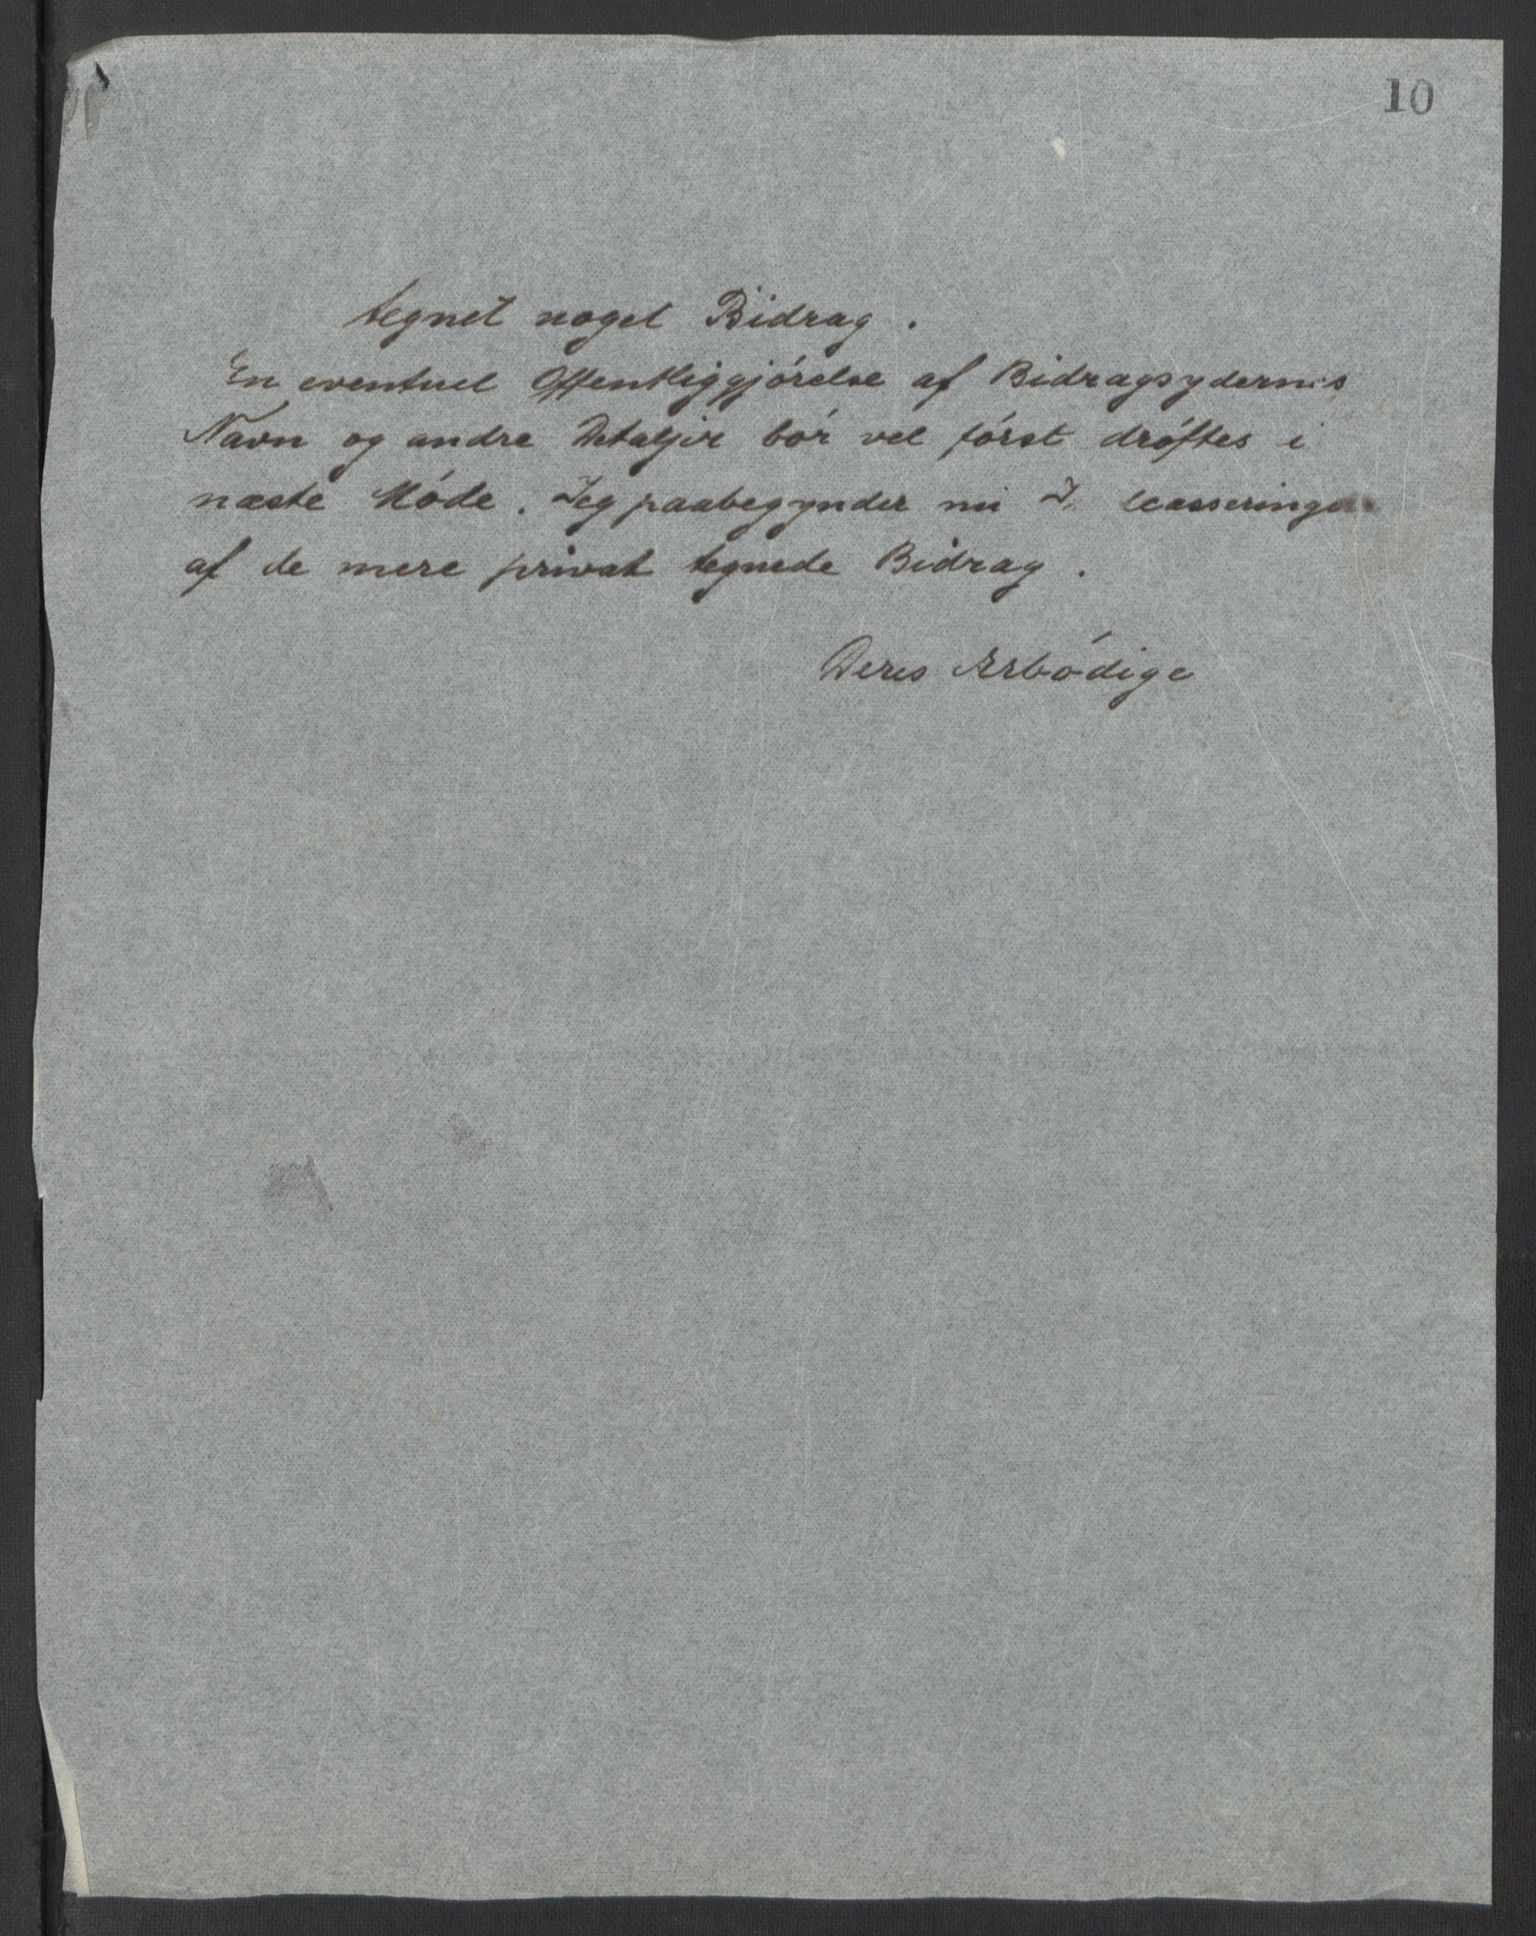 10
tegnet noget Bidrag.
En eventuel Offentliggjórelse af Bidragsydernes
Navn og andre Detaljer bór vel fórst dróftes i
næste Móde. Jeg paabegynder nu Incasseringen
af de mere privat tegnede Bidrag.
Deres Ærbódige